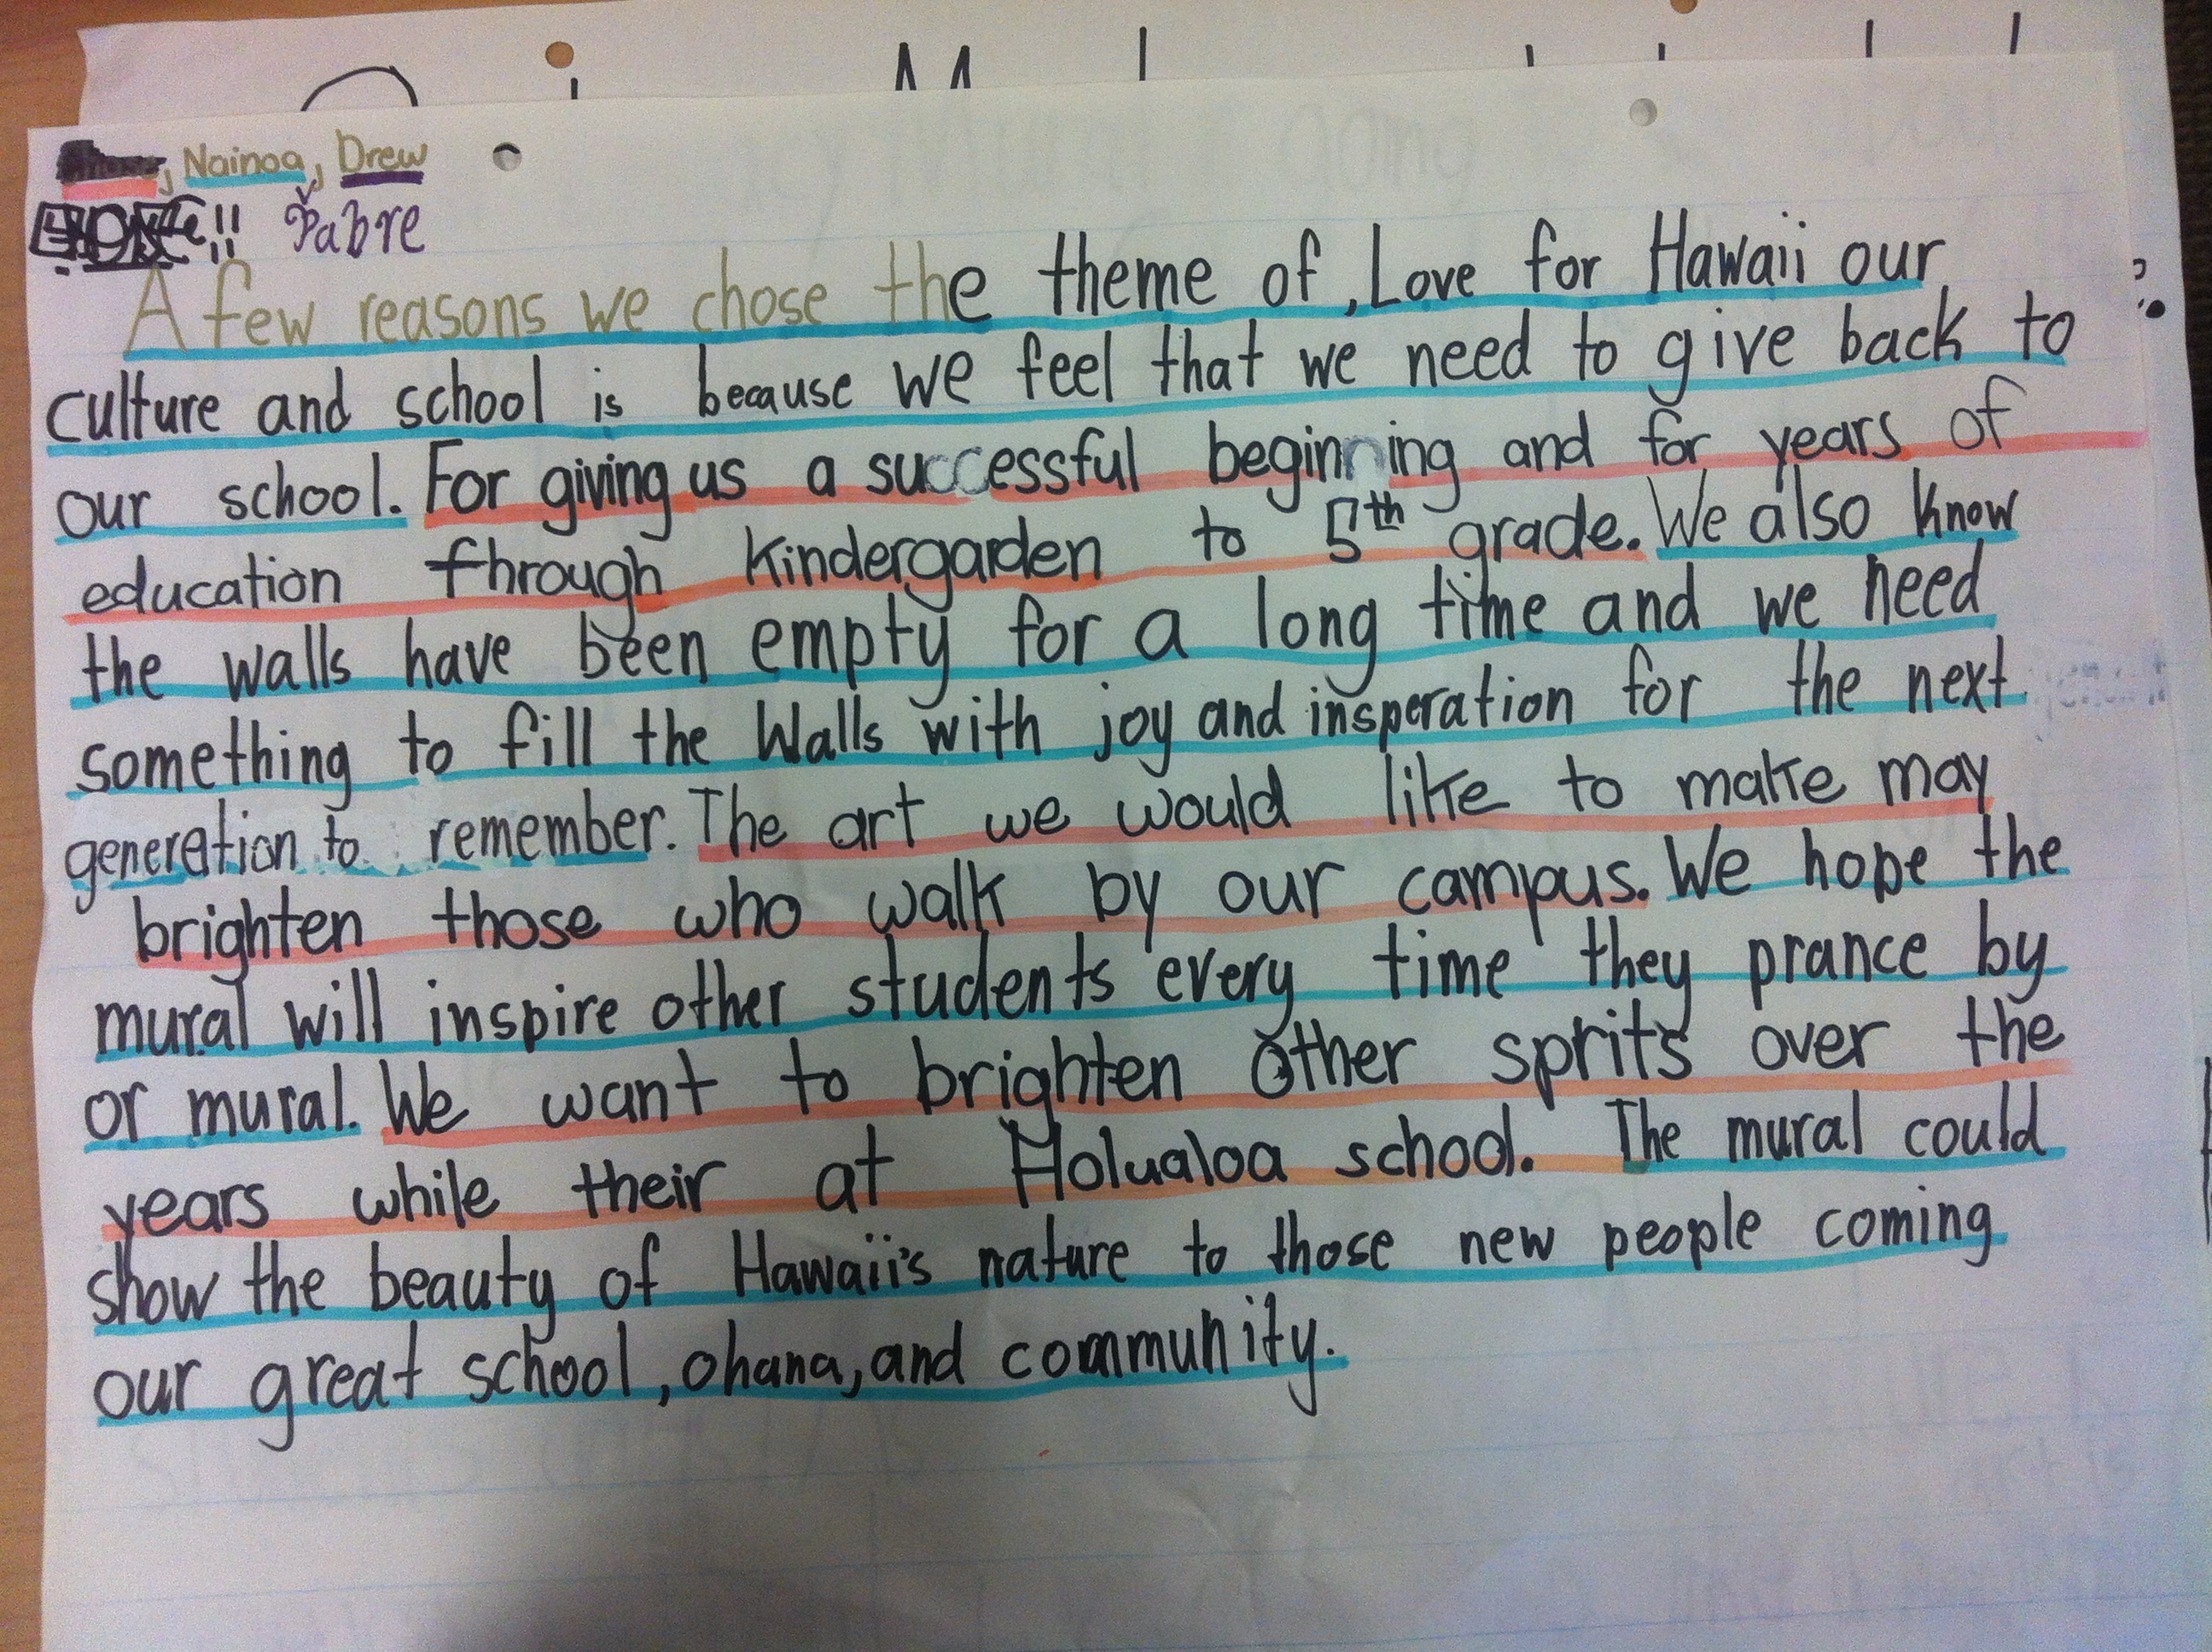 , Nainoa, Drew
!! Pabre
A few reasons we chose the theme of, Love for Hawaii our
culture and school is because we feel that we need to give back to
our school. For giving us a successful beginning and for years of
education through Kindergarden to 5th grade. We also know
the walls have been empty for a long time and we need
something to fill the walls with joy and insperation for the next
generation to remember. The art we would like to make may
brighten those who walk by our campus. We hope the
mural will inspire other students every time they prance by
or mural. We want to brighten other sprits over the
years while their at Holualoa school. The mural could
show the beauty of Hawaii's nature to those new people coming
our great school, ohana, and community.